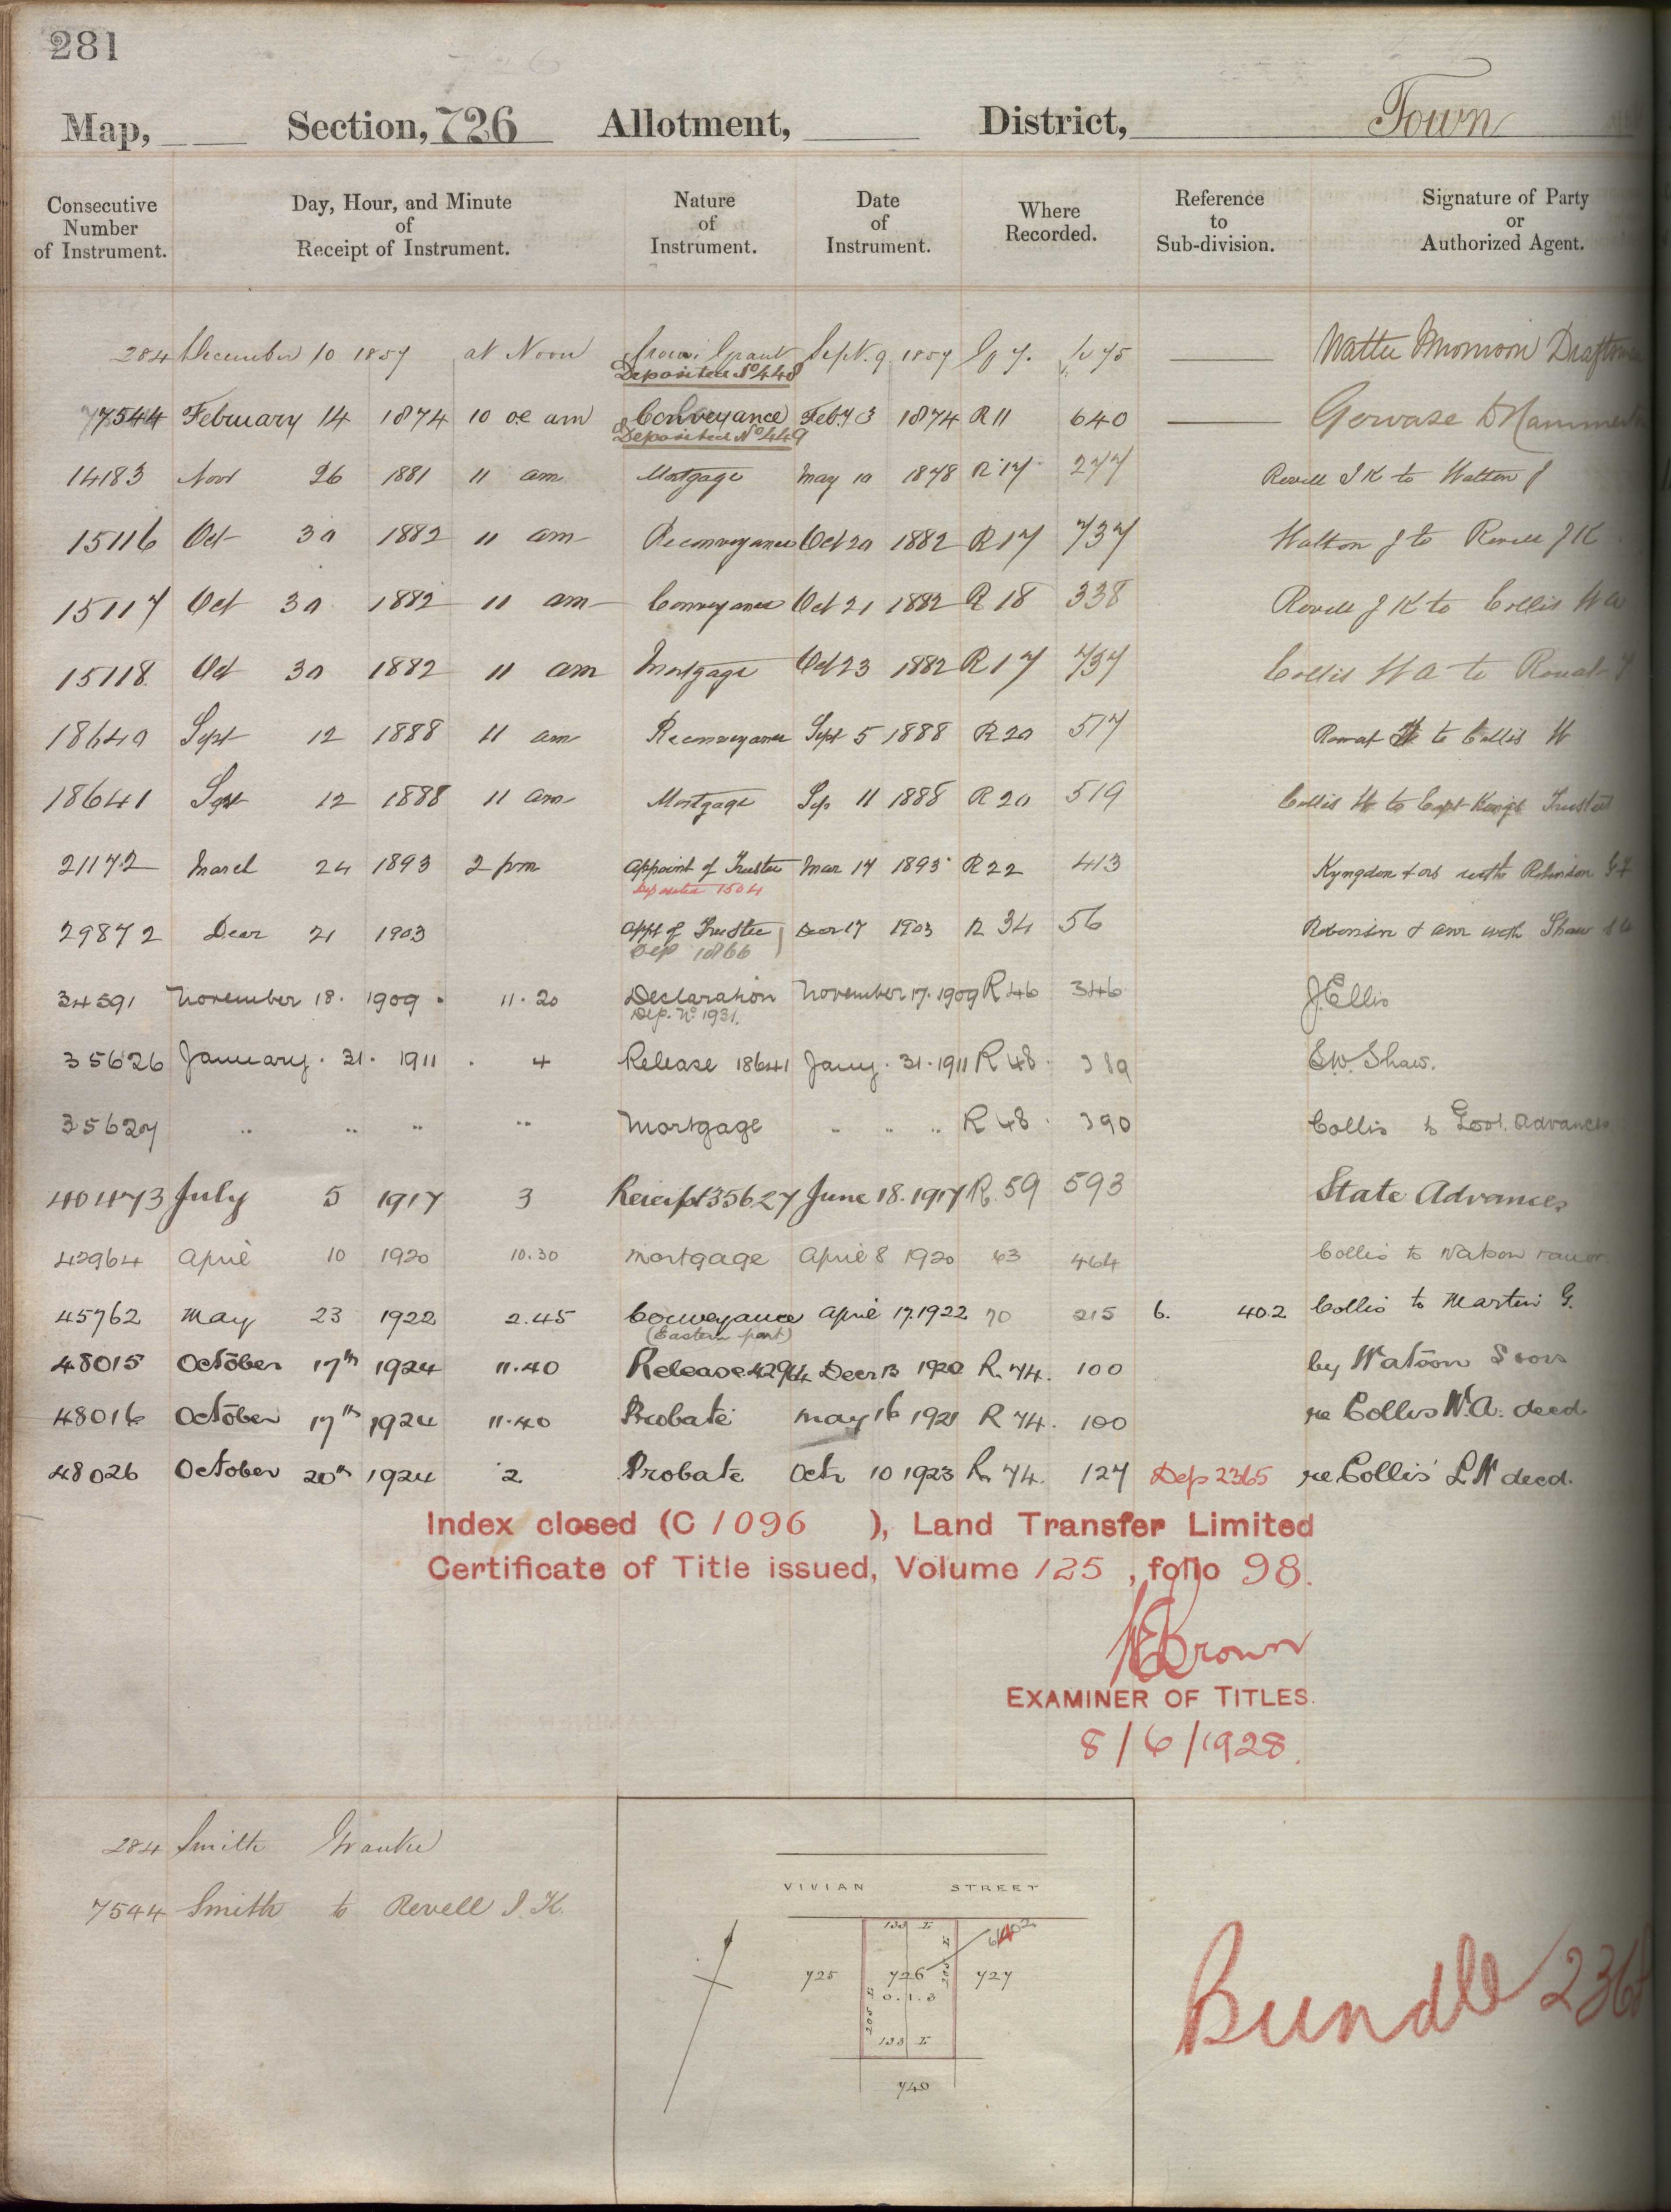 281
Map, Section, 726 Allotment, District, Town
Consecutive Number of Instrument. Day, Hour, and Minute of Receipt of Instrument. Nature of Instrument. Date of Instrument. Where Recorded. Reference to Sub-division. Signature of Party or Authorized Agent.
284 December 10 1857 at Noon Crown Grant Sept. 9 1857 75
Deposited No 448
7544 February 14 1874 10 am Conveyance Feby 3 1874 R 11 640 Gervase D Hammerton
Deposited No 449
14183 Novr 26 1881 11 am Mortgage May 10 1878 R 17 277 Revell J K to Walton J
15116 Oct 30 1882 11 am Reconveyance Oct 20 1882 R 17 737 Walton J to Revell J K
15117 Oct 30 1882 11 am Conveyance Oct 21 1882 R 18 338 Revell J K to Collis W A
15118 Oct 30 1882 11 am Mortgage Oct 23 1882 R 17 737 Collis W A to
18640 Sept 12 1888 11 am Reconveyance Sept 5 1888 R 20 517 to Collis W
18641 Sept 12 1888 11 am Mortgage Sep 11 1888 R 20 519 Collis W to Capt King's Trustees
21172 March 24 1893 2 pm Appoint of Trustee Mar 17 1893 R 22 413 Kyngdon & ors with Robinson
Deposited 1504
29872 Decr 21 1903 Appt of Trustee Decr 17 1903 R 34 56 Robinson & anr with Shaw
Dep 1866
34591 November 18. 1909. 11.20 Declaration November 17. 1909 R 46 346 J. Ellis
Dep. No 1931.
35626 January. 31. 1911. 4 Release 18641 Jany. 31. 1911 R 48. 389 C.W. Shaw.
35627 " " " " Mortgage " " " R 48. 390 Collis to Govt. Advances
40473 July 5 1917 3 Receipt 35627 June 18. 1917 R. 59 593 State Advances
42964 April 10 1920 10.30 Mortgage April 8 1920 63 464 Collis to Watson
45762 May 23 1922 2.45 Conveyance April 17. 1922 70 215 6. 40.2 Collis to Martin G.
(Eastern part)
48015 October 17th 1924 11.40 Release 42964 Decr 13 1920 R. 74. 100 by Watson & ors
48016 October 17th 1924 11.40 Probate May 16 1921 R 74. 100 re Collis W.A. decd
48026 October 20th 1924 2 Probate Octr 10 1923 R. 74. 127 Dep 2365 re Collis L W decd.
Index closed (C 1096 ), Land Transfer Limited
Certificate of Title issued, Volume 125, folio 98.
Brown
EXAMINER OF TITLES.
8/6/1928.
284 Smith Grantee
7544 Smith to Revell J. K.
VIVIAN STREET
725 726 727
0.1.3
740
Bundle